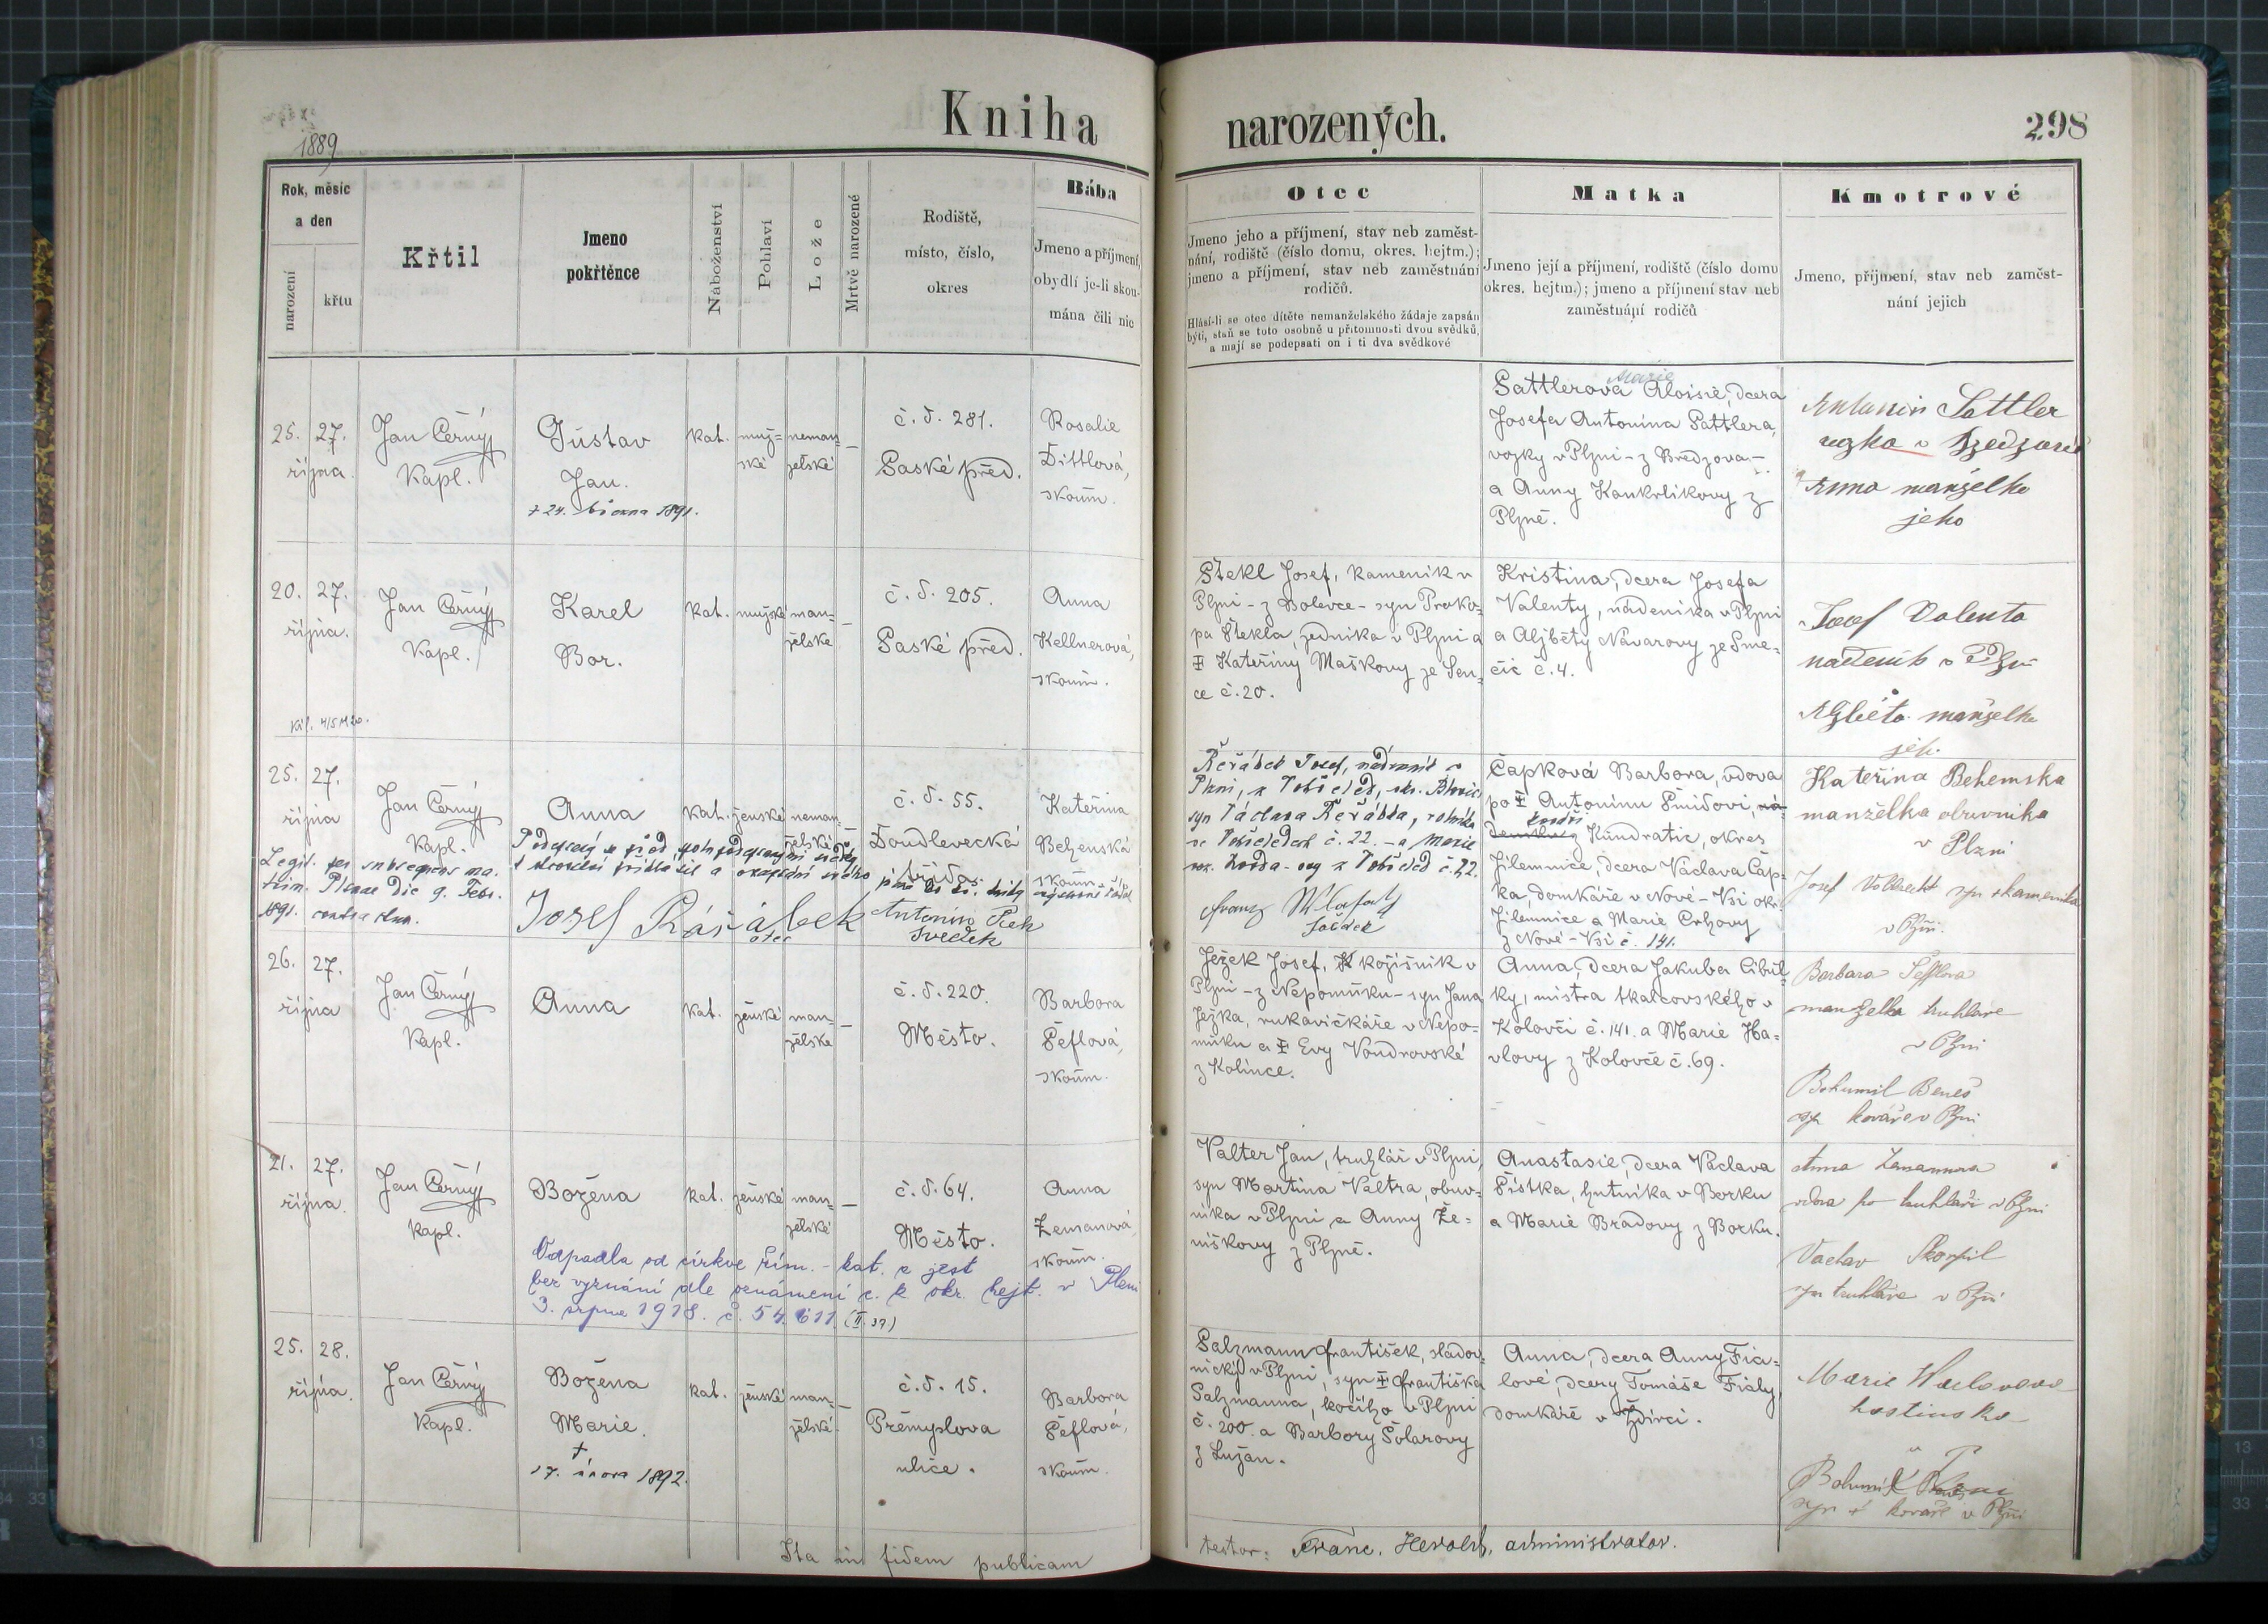 1889
Kniha
narozených.
298
Rok, měsíc
a den
narození
křtu
Křtil
Jmeno
pokřtěnce
Náboženství
Pohlaví
Lože
Mrtvě narozené
Rodiště,
místo, číslo,
okres
Bába
Jmeno a příjmení,
obydlí je-li skou-
mána čili nic
Otec
Jmeno jeho a příjmení, stav neb zaměst-
nání, rodiště (číslo domu, okres. hejtm.);
jmeno a příjmení, stav neb zaměstnání
rodičů.
Hlásí-li se otec dítěte nemanželského žádaje zapsán
býti, staň se toto osobně u přítomnosti dvou svědků,
a mají se podepsati on i ti dva svědkové
Matka
Jmeno její a příjmení, rodiště (číslo domu
okres. hejtm.); jmeno a příjmení stav neb
zaměstnání rodičů
Kmotrové
Jmeno, příjmení, stav neb zaměst-
nání jejich
25. 27.
října.
Jan Černý
Kapl.
Gustav
Jan.
† 24. března 1891.
kat.
muž-
ské
neman-
želské
—
č. d. 281.
Saské před.
Rosalie
Dittlová,
skoum.
Marie
Sattlerová Aloisie, dcera
Josefa Antonína Sattlera,
vozky v Plzni - z Bredzova -
a Anny Kankrlíkovy z
Plzně.
Antonín Sattler
Anna manželka
jeho
20. 27.
října.
Jan Černý
Kapl.
Karel
Bor.
kat.
mužské
man-
želské
—
č. d. 205.
Saské před.
Anna
Kellnerová,
skoum.
Štekl Josef, kameník v
Plzni - z Bolevce - syn Proko-
pa Štekla, zedníka v Plzni a
‡ Kateřiny Maškovy ze Sen-
ce č. 20.
Kristina, dcera Josefa
Valenty, nádeníka v Plzni
a Alžběty Návarovy ze Sme-
čic č. 4.
Josef Valenta
nádeník v Plzni
Alžběta manželka
jeh.
25. 27.
října
Jan Černý
Kapl.
Anna
kat.
ženské
neman-
želské
—
č. d. 55.
Doudlevecká
třída.
Kateřina
Behenská
skoum.
Legit. per subsequens ma-
trim. Pilsnae die 9. Febr.
1891.
Josef Řářábek
otec
Antonín Pech
svědek
Řeřábek Josef, nádeník v
Plzni, z
syn Václava Řeřábka, rolníka
č. 22. - a Marie
č. 22.
Franz
Svědek
Čapková Barbora, vdova
po ‡ Antonínu Šmídovi, ná-
Kundratic, okres
Jilemnice, dcera Václava Čap-
ka, domkáře v Nové-Vsi okr.
Jilemnice a Marie Crhovy
z Nové-Vsi č. 141.
Kateřina Behemska
manželka obuvníka
v Plzni
Josef
v Plzni.
26. 27.
října
Jan Černý
Kapl.
Anna
kat.
ženské
man-
želské
—
č. d. 220.
Město.
Barbora
Šeflová,
skoum.
Ježek Josef, kožišník v
Plzni - z Nepomuku - syn Jana
Ježka, rukavičkáře v Nepo-
muku a ‡ Evy Vondrovské
z Kolince.
Anna, dcera Jakuba Cibul-
ky, mistra tkalcovského v
Kolovči č. 141. a Marie Ha-
vlovy z Kolovče č. 69.
Barbara Šefflova
manželka truhláře
v Plzni
Bohumil Beneš
syn kováře v Plzni
21. 27.
října.
Jan Černý
kapl.
Božena
kat.
ženské
man-
želské
—
č. d. 64.
Město.
Anna
Zemanová,
skoum.
Odpadla od církve řím. - kat. a jest
bez vyznání dle oznámení c. k. okr. hejt. v Plzni
3. srpna 1918. č. 54.611
Valter Jan, truhlář v Plzni,
syn Martina Valtra, obuv-
níka v Plzni a Anny Že-
níškovy z Plzně.
Anastasie, dcera Václava
Šístka, hutníka v Borku
a Marie Bradovy z Borku.
Anna Zemanova
vdova po truhláři v Plzni
Vaclav Skorpil
syn truhláře v Plzni
25. 28.
října.
Jan Černý
kapl.
Božena
Marie.
†
17. února 1892.
kat.
ženské
man-
želské
—
č. d. 15.
Přemyslova
ulice.
Barbora
Šeflová,
skoum.
Salzmann František, sladov-
nický v Plzni, syn ‡ Františka
Salzmanna, kočího v Plzni
č. 200. a Barbory Šolarovy
z Lužan.
Anna, dcera Anny Fia-
lové, dcery Tomáše Fialy,
domkáře v Ždírci.
Marie
hostinska
Bohumil
syn kováře v Plzni
Ita in fidem publicam
testor: Franc. Herold, administrator.